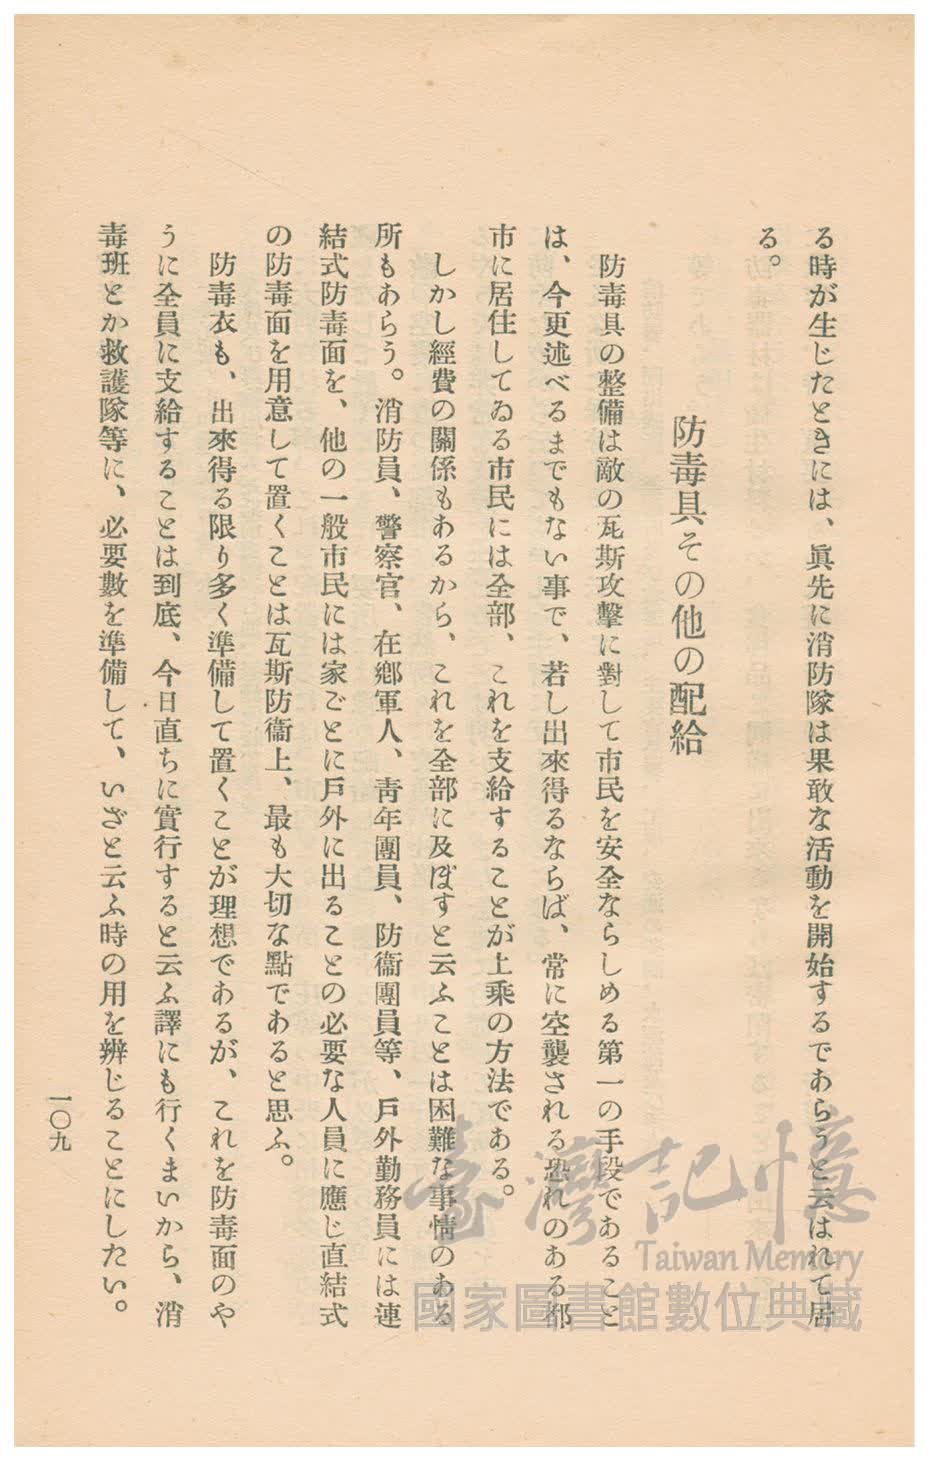 る時が生じたときには、眞先に消防隊は果敢な活動を開始するであらうと云はれて居
る。
防毒具その他の配給
防毒具の整備は敵の瓦斯攻擊に對して市民を安全ならしめる第一の手段であること
は、今更述べるまでもない事で、若し出來得るならば、常に空襲される恐れのある都
市に居住してゐる市民には全部、これを支給することが上乘の方法である。
しかし經費の關係もあるから、これを全部に及ぼすと云ふことは困難な事情のある
所もあらう。消防員、警察官、在鄕軍人、靑年團員、防衞團員等、戶外勤務員には連
結式防毒面を、他の一般市民には家ごとに戶外に出ることの必要な人員に應じ直結式
の防毒面を用意して置くことは瓦斯防衞上、最も大切な點であると思ふ。
防毒衣も、出來得る限り多く準備して置くことが理想であるが、これを防毒面のや
うに全員に支給することは到底、今日直ちに實行すると云ふ譯にも行くまいから、消
毒班とか救護隊等に、必要數を準備して、いざと云ふ時の用を辨じることにしたい。
一〇九
臺灣記憶
Taiwan Memory
國家圖書館數位典藏